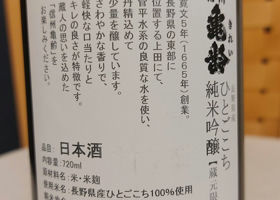 亀齢
きれい
長野県産
ひとごこち
純米吟醸
寛文5年(1665年)創業。
長野県の東部に
位置する上田にて、
菅平水系の良質な水を使い、
丹精込めて
少量を醸しています。
さわやかな香りで、
軽快な口当たりと
キレの良さが特徴です。
蔵人の思いを込めた
「信州亀齢」を
お楽しみください。
品目:日本酒
内容量:720ml
原材料:米・米麹
使用米:長野県産ひとごこち100%使用